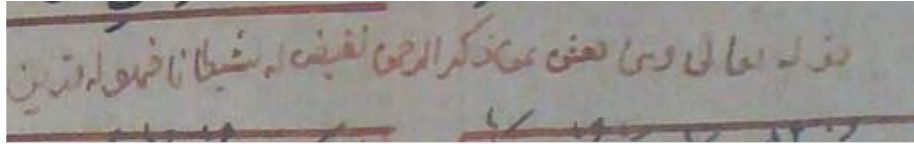 قوله تعالى ومن يعش عن ذكر الرحمن نقيض له شيطانا فهو له قرين